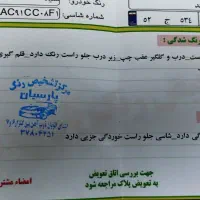 رنگ خودرو:
شماره شاسی: AC91CC08F1
ج ۵۳۴ ج ۵۲
رنگ شدگی:
ست_درب و گلگیر عقب چپ_زیر درب جلو راست رنگ دارد_قلم گیری
مرکز تشخیص رنگ
پارسیان
۳۷۸۰۴۲۵۱
دارد_شاسی جلو راست خوردگی جزیی دارد
جهت بررسی اتاق تعویض
به تعویض پلاک مراجعه شود
امضاء مشتر